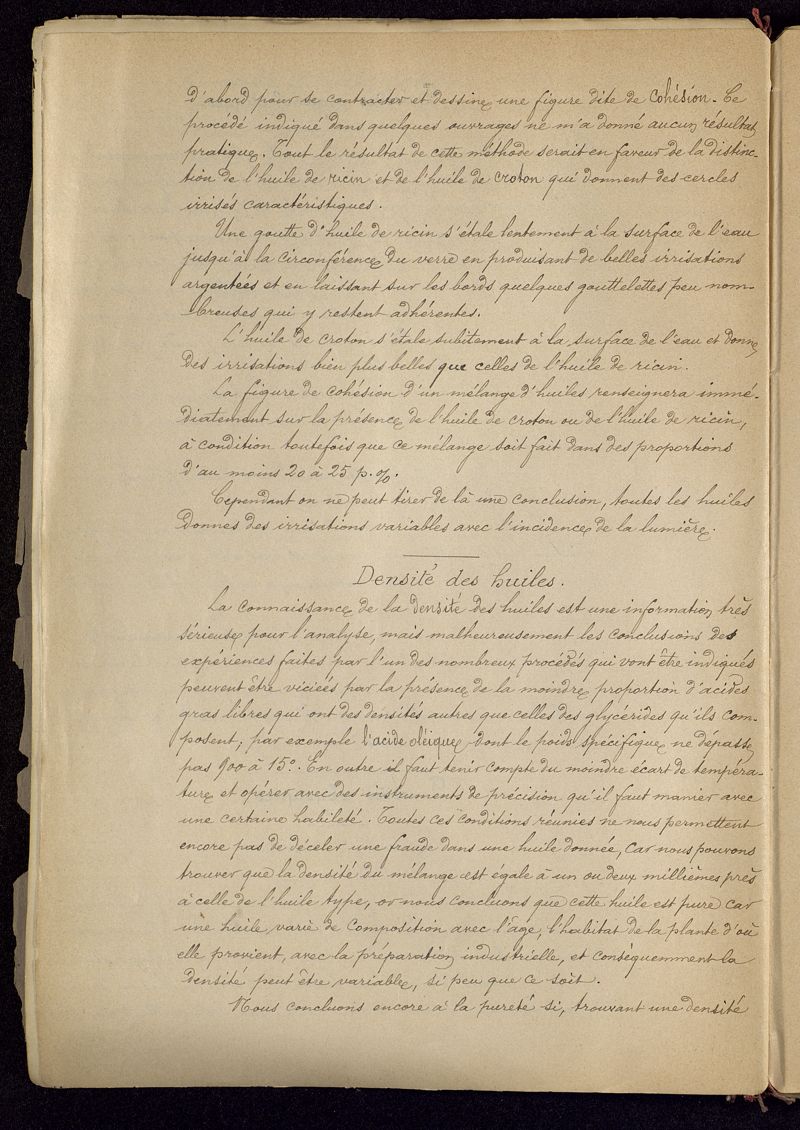 d'abord pour se contracter et dessine, une figure dite de Cohésion. Ce
procédé indiqué dans quelques ouvrages ne m'a donné aucun résultat
pratique. Tout le résultat de cette méthode serait en faveur de la distinc-
tion de l'huile de ricin et de l'huile de croton qui donnent des cercles
irrisés caractéristiques.
Une goutte d'huile de ricin s'étale lentement à la surface de l'eau
jusqu'à la circonférence du verre en produisant de belles irrisations
argentées et en laissant sur les bords quelques gouttelettes peu nom-
breuses qui y restent adhérentes.
L'huile de croton s'étale subitement à la surface de l'eau et donne
des irrisations bien plus belles que celles de l'huile de ricin.
La figure de cohésion d'un mélange d'huiles renseignera immé-
diatement sur la présence de l'huile de croton ou de l'huile de ricin,
à condition toutefois que ce mélange soit fait dans des proportions
d'au moins 20 à 25 p.%.
Cependant on ne peut tirer de là une conclusion, toutes les huiles
donnes des irrisations variables avec l'incidence de la lumière.
Densité des huiles.
La connaissance de la densité des huiles est une information très
sérieuse pour l'analyse, mais malheureusement les conclusions des
expériences faites par l'un des nombreux procédés qui vont être indiqués
peuvent être viciées par la présence de la moindre proportion d'acides
gras libres qui ont des densités autres que celles des glycérides qu'ils com-
posent; par exemple l'acide oléique dont le poids spécifique ne dépasse
pas 900 à 15°. En outre il faut tenir compte du moindre écart de tempéra-
ture et opérer avec des instruments de précision qu'il faut manier avec
une certaine habileté. Toutes ces conditions réunies ne nous permettent
encore pas de déceler une fraude dans une huile donnée, car nous pouvons
trouver que la densité du mélange est égale à un ou deux millièmes près
à celle de l'huile type, or nous concluons que cette huile est pure car
une huile varie de composition avec l'âge, l'habitat de la plante d'où
elle provient, avec la préparation industrielle, et conséquemment la
densité peut être variable, si peu que ce soit.
Nous concluons encore à la pureté si, trouvant une densité